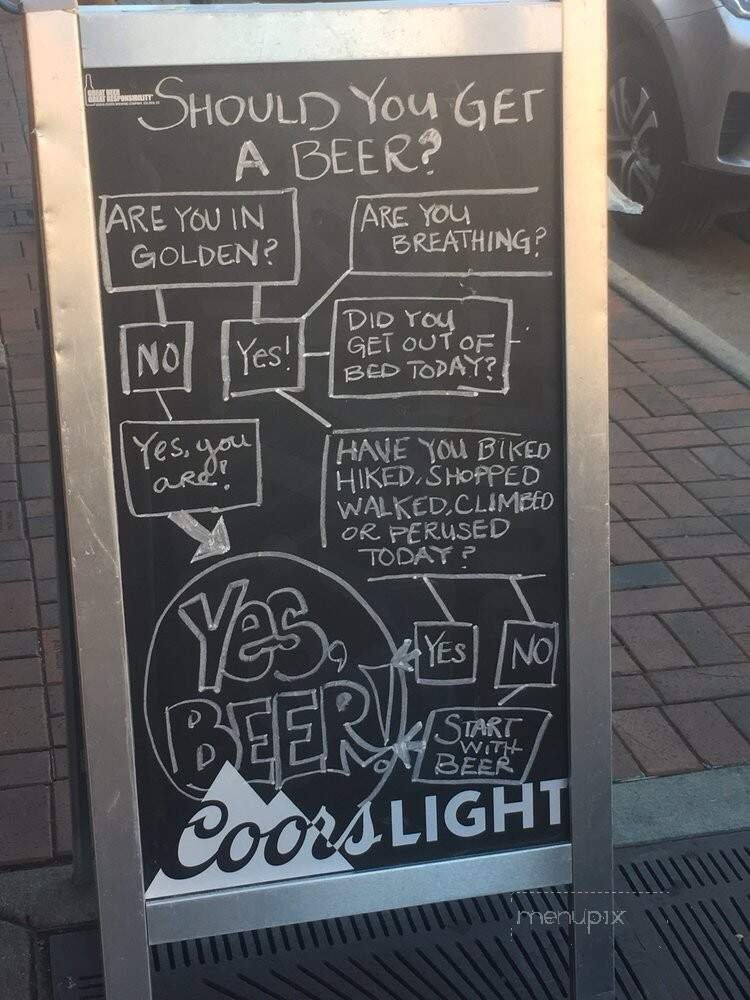 GREAT BEER
GREAT RESPONSIBILITY
SHOULD YOU GET
A BEER?
ARE YOU IN
GOLDEN?
ARE YOU
BREATHING?
NO
Yes!
DID YOU
GET OUT OF
BED TODAY?
Yes, you
are!
HAVE YOU BIKED
HIKED, SHOPPED
WALKED, CLIMBED
OR PERUSED
TODAY?
Yes,
BEER!
YES
NO
START
WITH
BEER
Coors LIGHT
menupix